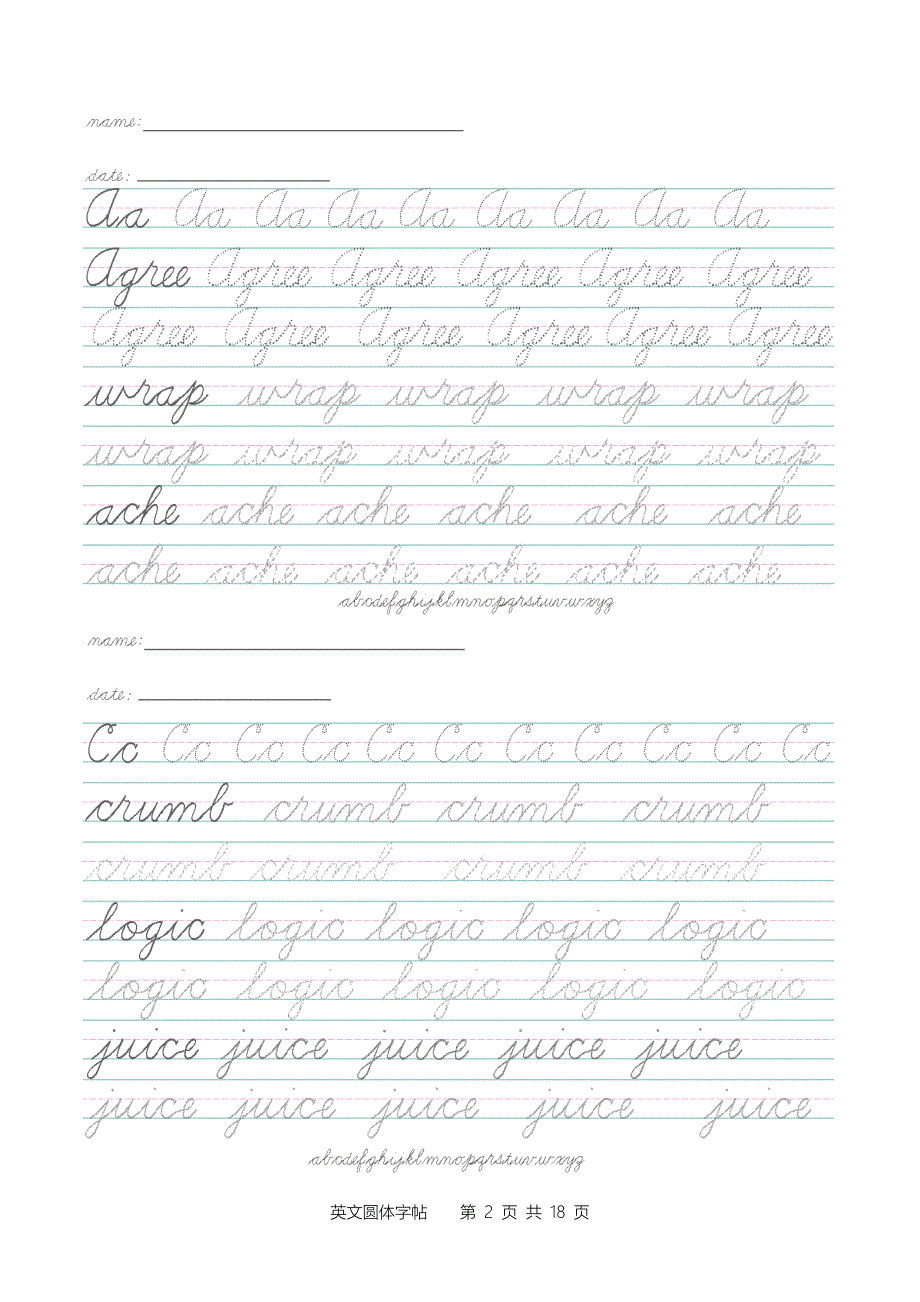 name:
date:
Aa Aa Aa Aa Aa Aa Aa Aa Aa
Agree Agree Agree Agree Agree Agree
Agree Agree Agree Agree Agree Agree
wrap wrap wrap wrap wrap
wrap wrap wrap wrap wrap
ache ache ache ache ache ache
ache ache ache ache ache ache
abcdefghijklmnopqrstuvwxyz
name:
date:
Cc Cc Cc Cc Cc Cc Cc Cc Cc Cc Cc
crumb crumb crumb crumb
crumb crumb crumb crumb
logic logic logic logic logic
logic logic logic logic logic
juice juice juice juice juice
juice juice juice juice juice
abcdefghijklmnopqrstuvwxyz
英文圆体字帖 第 2 页 共 18 页